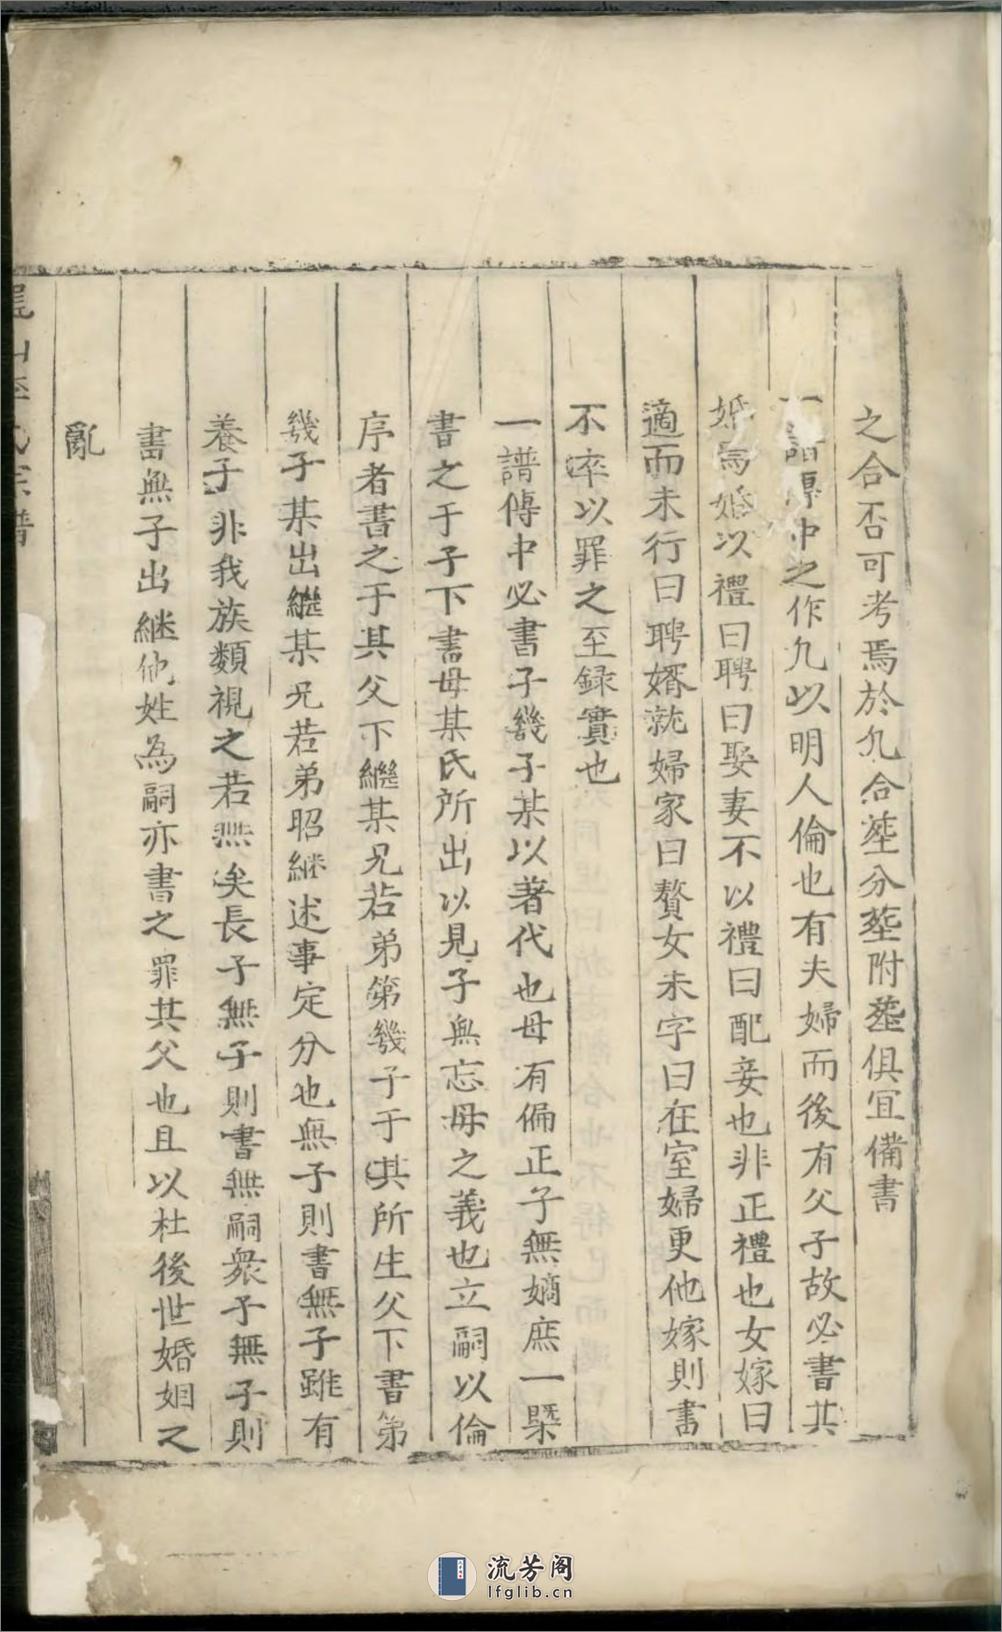 之合否可考焉於凢合塟分塟附塟俱宜備書
一譜傳中之作凢以明人倫也有夫婦而後有父子故必書其
婚焉婚以禮曰聘曰娶妻不以禮曰配妾也非正禮也女嫁曰
適而未行曰聘婿就婦家曰贅女未字曰在室婦更他嫁則書
不卒以罪之至録實也
一譜傳中必書子幾子某以著代也母有偏正子無嫡庶一槩
書之于子下書母某氏所出以見子無忘母之義也立嗣以倫
序者書之于其父下繼某兄若弟第幾子于其所生父下書第
幾子某出繼某兄若弟昭継述事定分也無子則書無子雖有
養子非我族類視之若無矣長子無子則書無嗣衆子無子則
書無子出継他姓為嗣亦書之罪其父也且以杜後世婚姻之
亂
山李氏宗譜
流芳阁
lfglib.cn